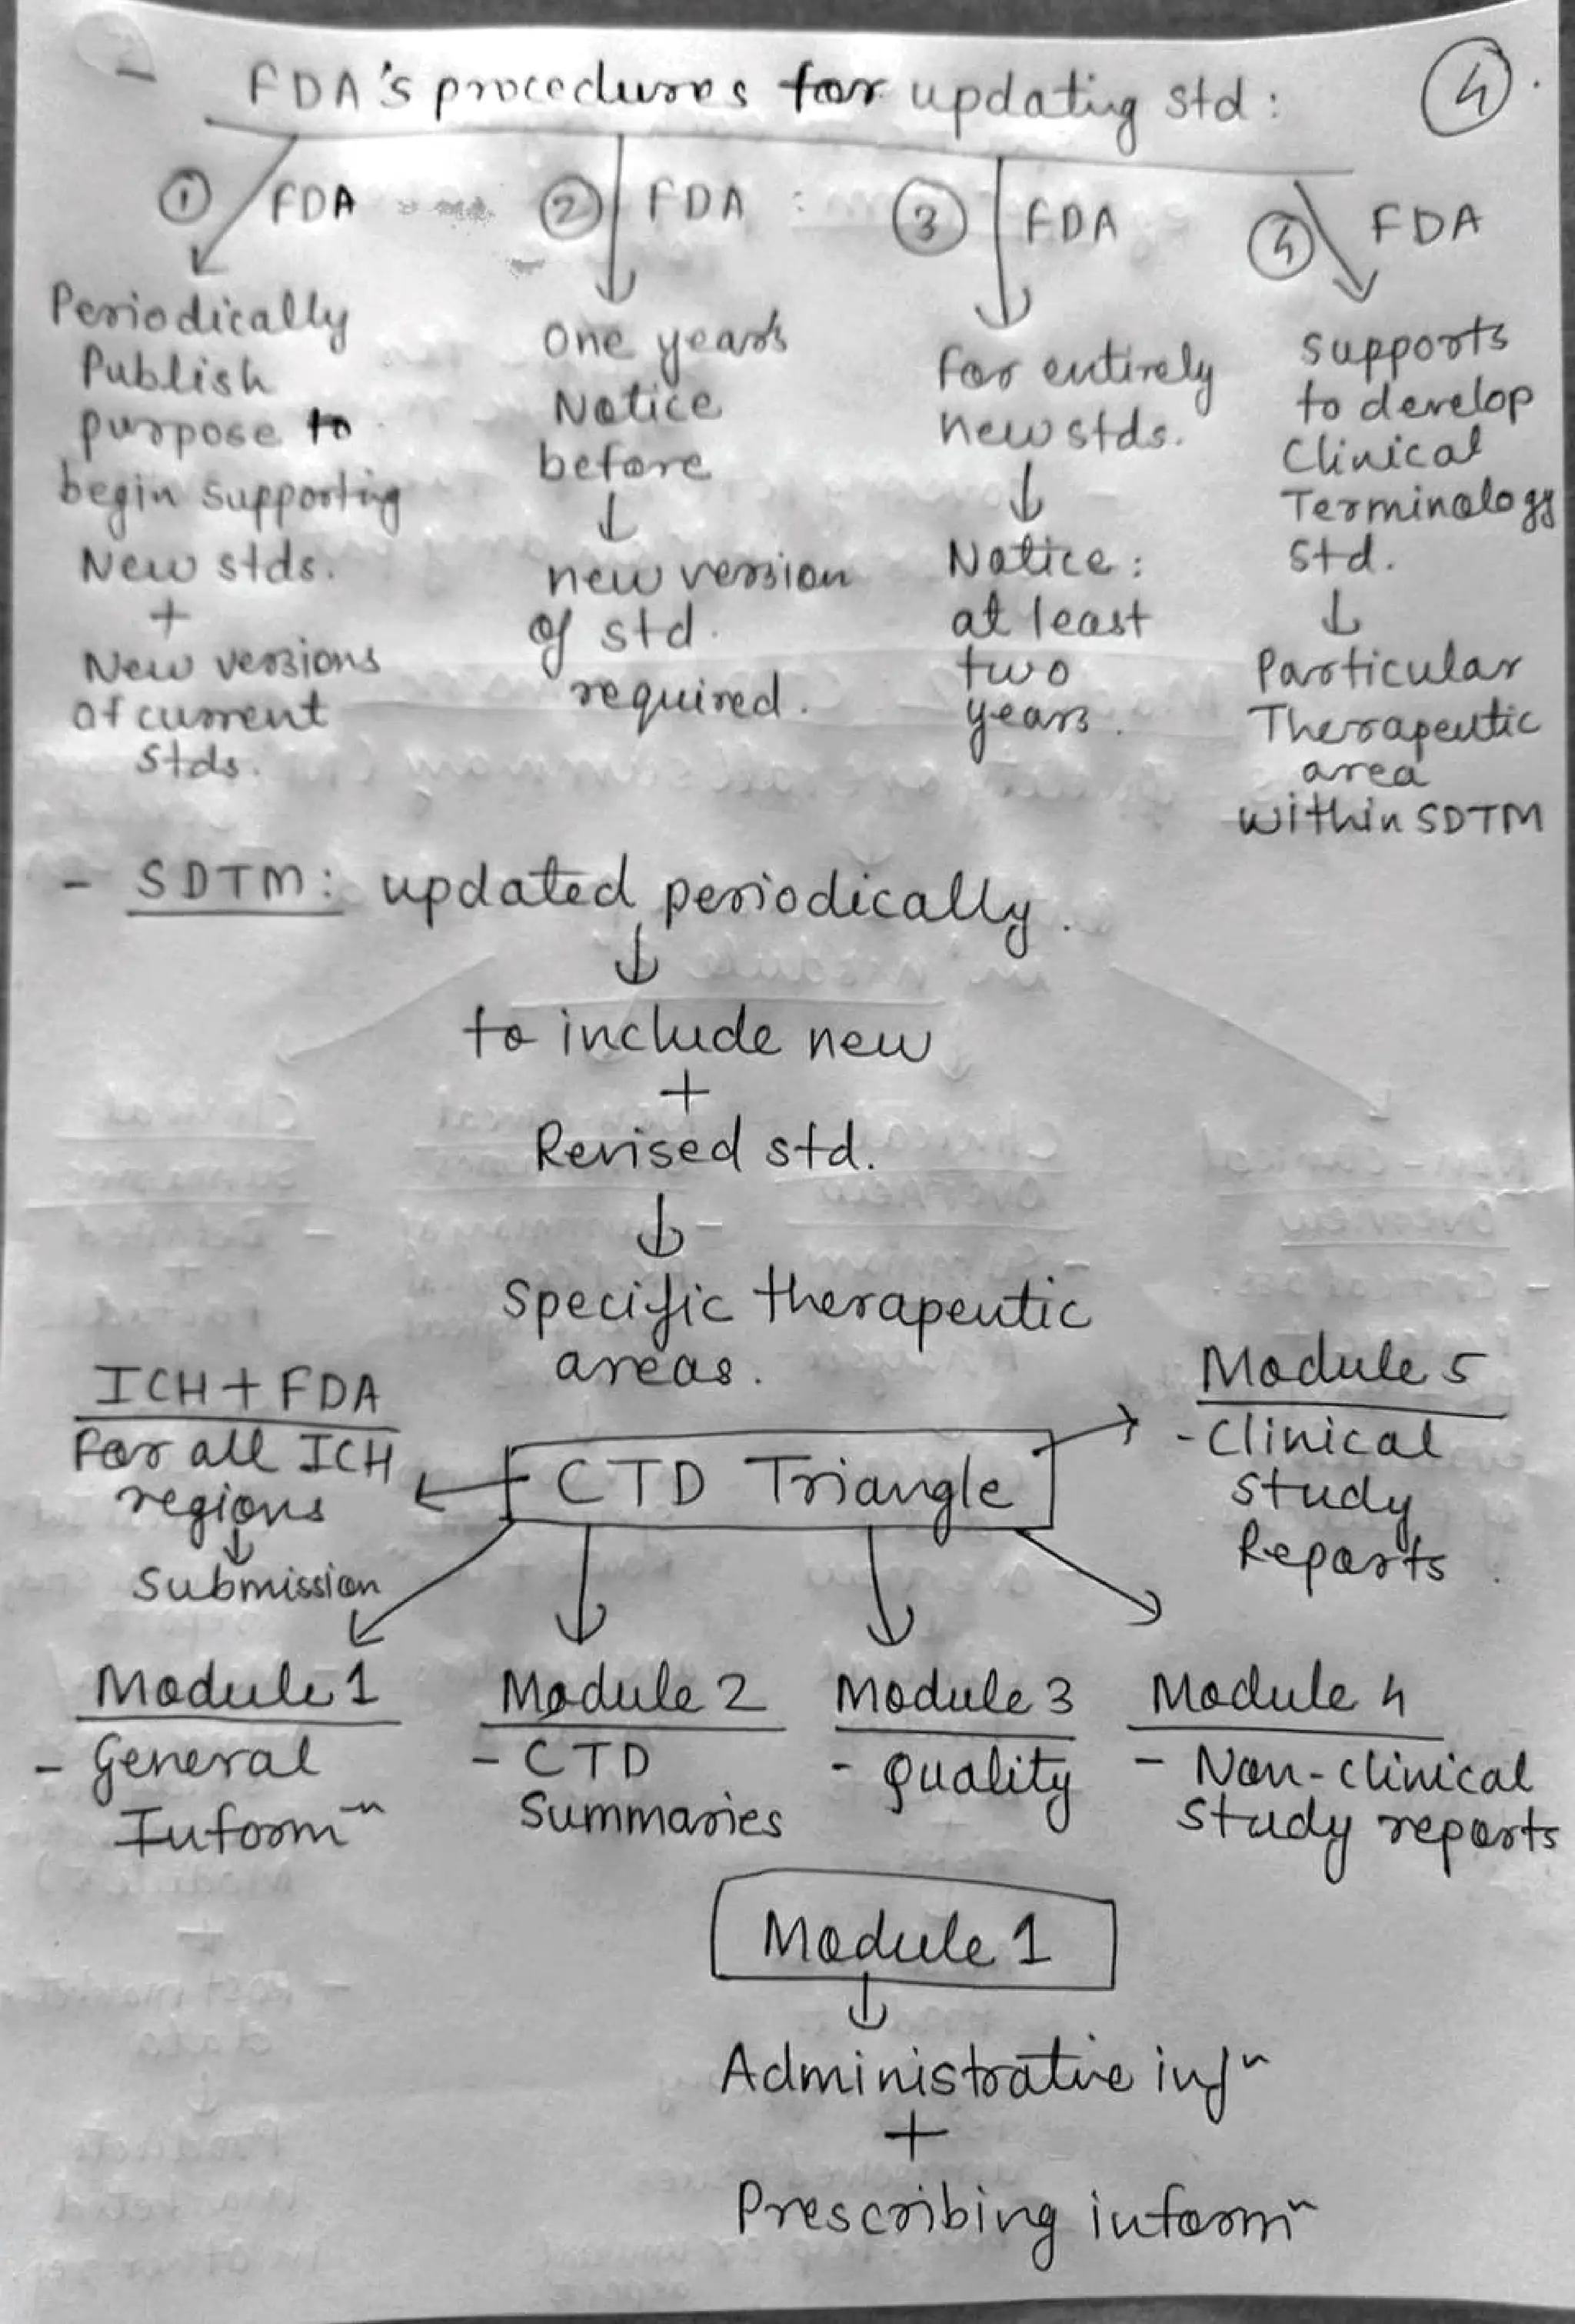 - FDA's procedures for updating std:
4
① FDA
Periodically
Publish
purpose to
begin supporting
New stds.
+
New versions
of current
stds.
② FDA :
One years
Notice
before
↓
new version
of std.
required.
③ FDA
For entirely
new stds.
↓
Notice:
at least
two
years.
④ FDA
supports
to develop
Clinical
Terminology
std.
↓
Particular
Therapeutic
area
within SDTM
- SDTM: updated periodically.
↓
to include new
+
Revised std.
↓
Specific therapeutic
areas.
ICH + FDA
For all ICH
regions
↓
Submission
CTD Triangle
Module 5
- Clinical
Study
Reports
Module 1
- General
Informⁿ
Module 2
- CTD
Summaries
Module 3
- Quality
Module 4
- Non-clinical
study reports
Module 1
↓
Administrative infⁿ
+
Prescribing informⁿ